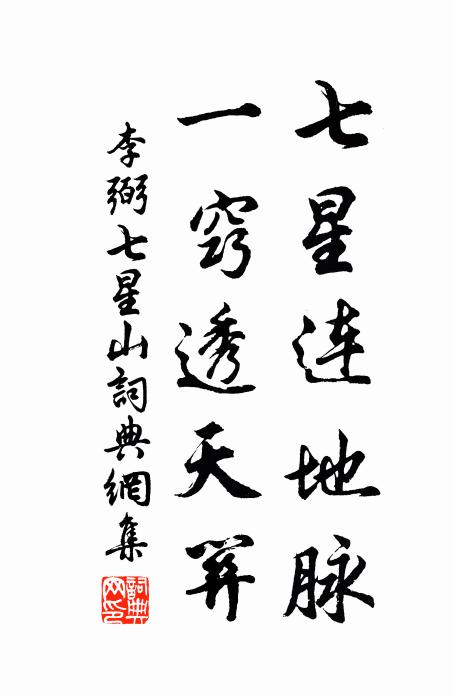 七星連地脉
一窍透天關
李弼七星山詞典網集
詞典
网印